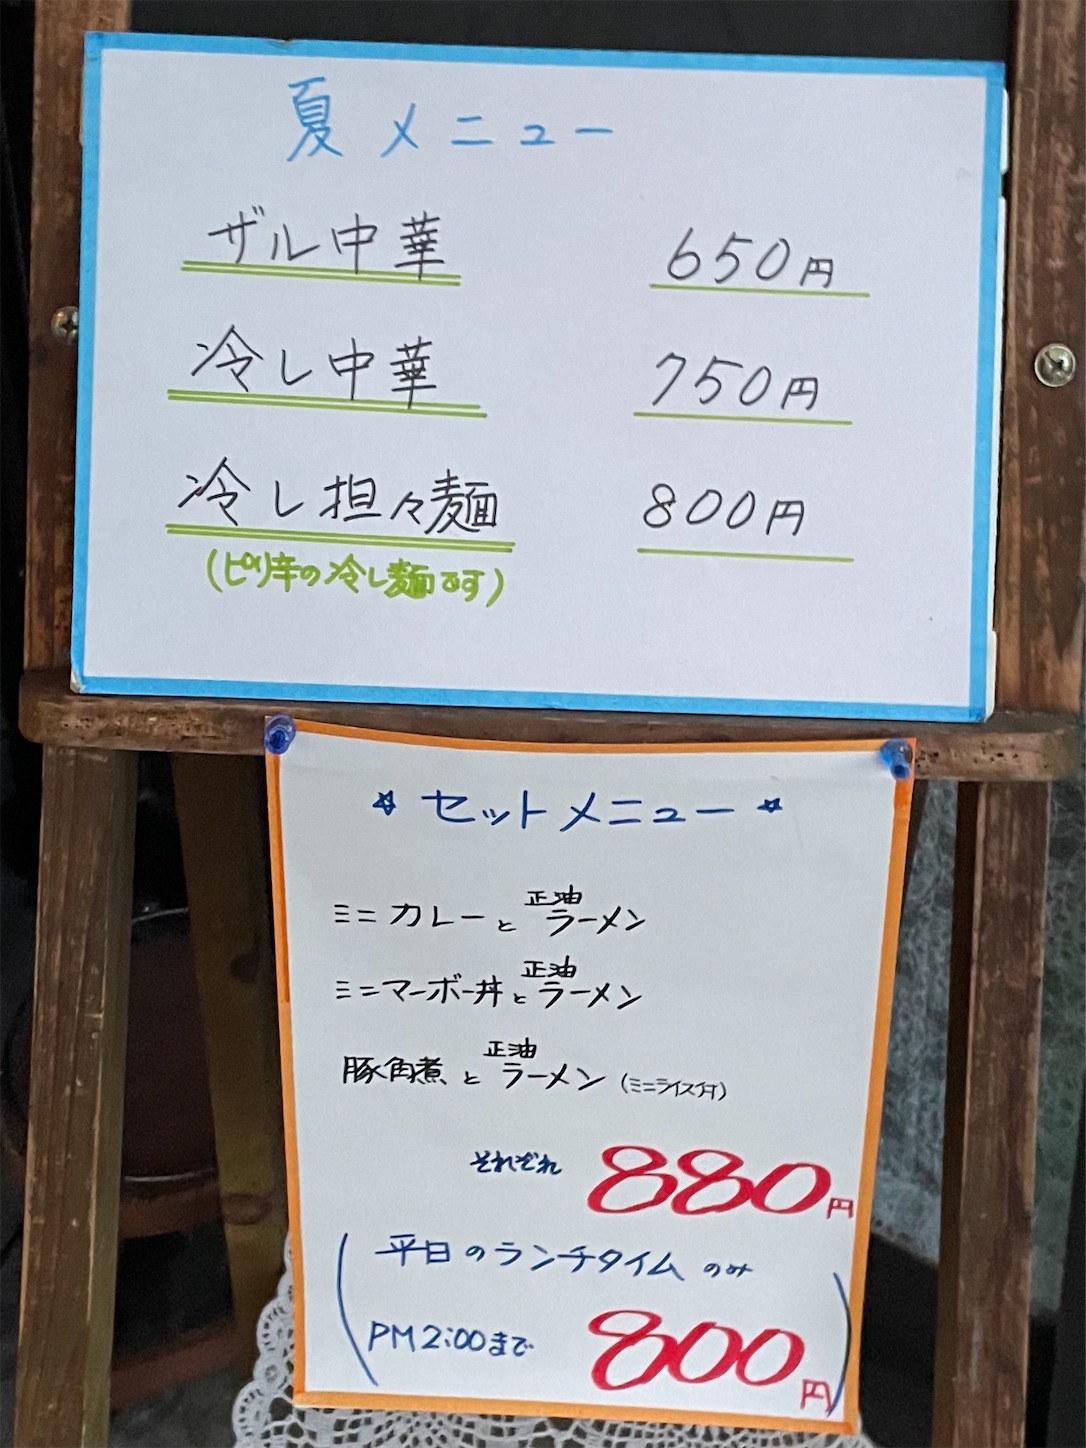 夏メニュー
ザル中華 650円
冷し中華 750円
冷し担々麺 800円
(ピリ辛の冷し麺です)
☆ セットメニュー ☆
ミニカレーと正油ラーメン
ミニマーボー丼と正油ラーメン
豚角煮と正油ラーメン(ミニライス付)
それぞれ 880円
(平日のランチタイムのみ
PM2:00まで 800円)